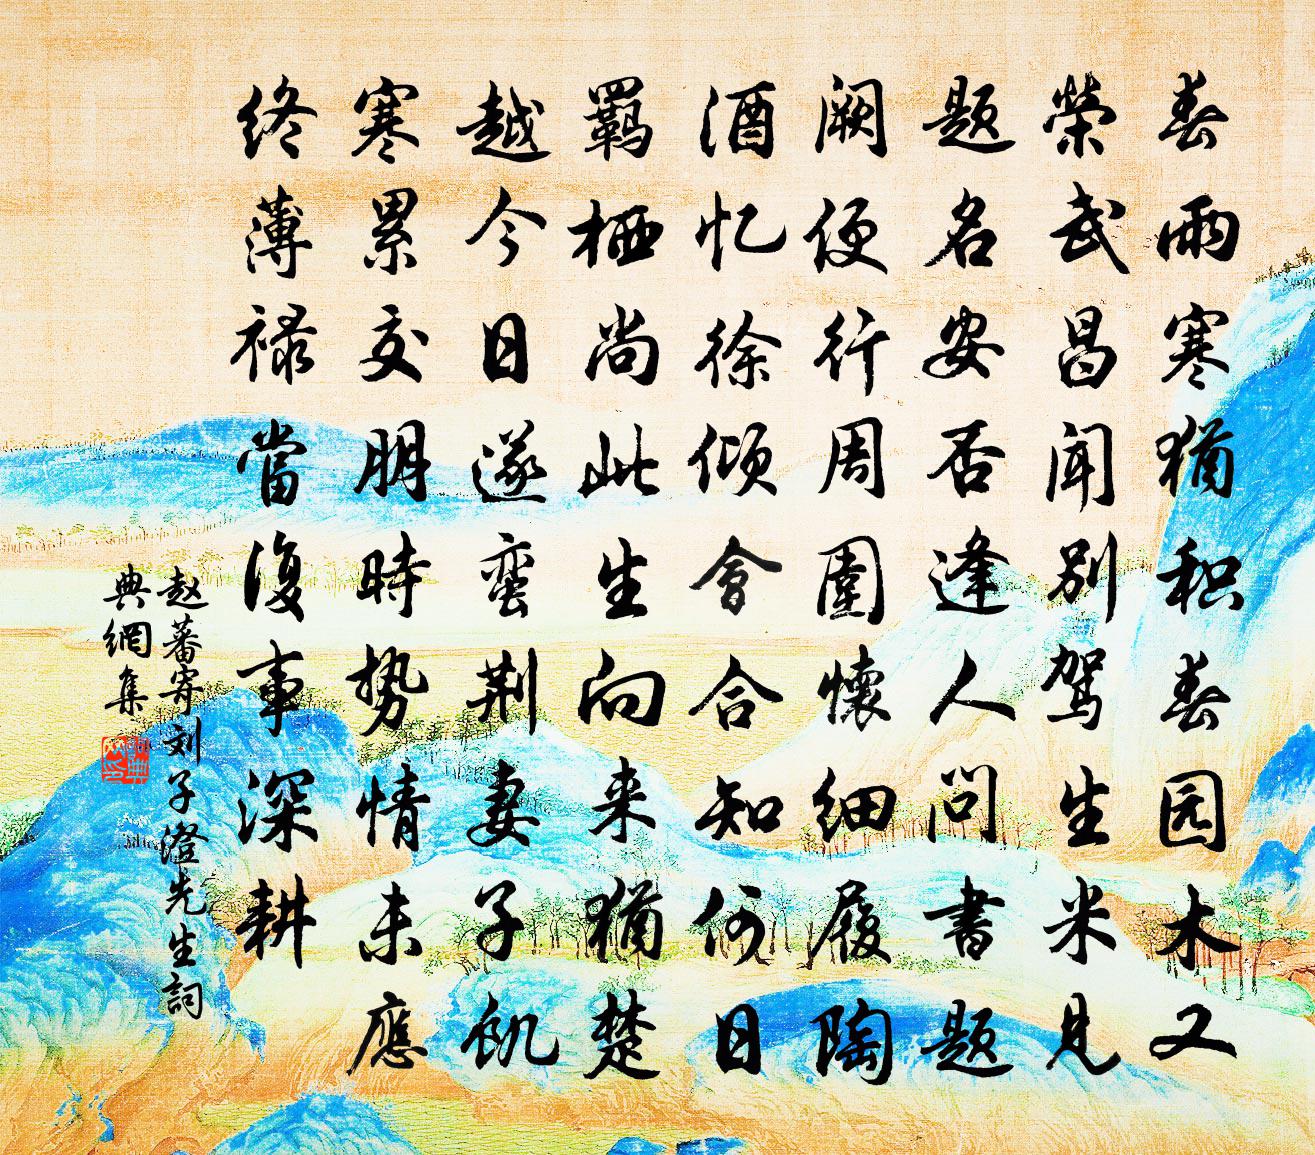 春雨寒犹积春园木又
荣武昌闻别驾生米见
题名安否逢人问書题
阙便行周圍懐细履陶
酒忆徐倾會合知何日
羁栖尚此生向来犹楚
越今日遂蛮荆妻子饥
寒累交朋時势情未應
终薄禄當復事深耕
赵蕃寄刘子澄先生詞
典網集